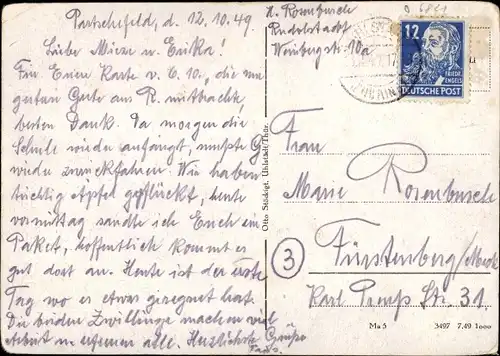 Partschefeld, d. 12.10.49.
Liebe Mieze u. Erika!
Für Euren Karte v. 6.10., die uns
gestern Gute aus R. mitbrachte,
besten Dank. Da morgen die
Schule wieder anfängt, mußte G.
wieder zurückfahren. Wir haben
tüchtig Äpfel gepflückt, heute
vormittag sandte ich Euch ein
Paket, hoffentlich kommt es
gut dort an. Heute ist der erste
Tag wo es etwas geregnet hat.
Die beiden Zwillinge machen viel
Arbeit u. erfreuen alle. Herzlichste Grüße
Otto Städgigl, Uhlstädt/Thür.
Rosenbusch
Rudolstadt
Weinbergstr. 10a
12
FRIEDR.
ENGELS
DEUTSCHE POST
Frau
Marie Rosenbusch
3
Fürstenberg/Meckl
Karl Preuß Str. 31.
Ma 5 3497 7,49 1000